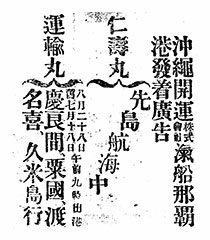 沖繩開運株式會社汽船那覇
港發着廣告
仁壽丸
先島航海中
運輸丸
八月二十八日午前九時出港
慶良間粟國、渡
名喜 久米島行